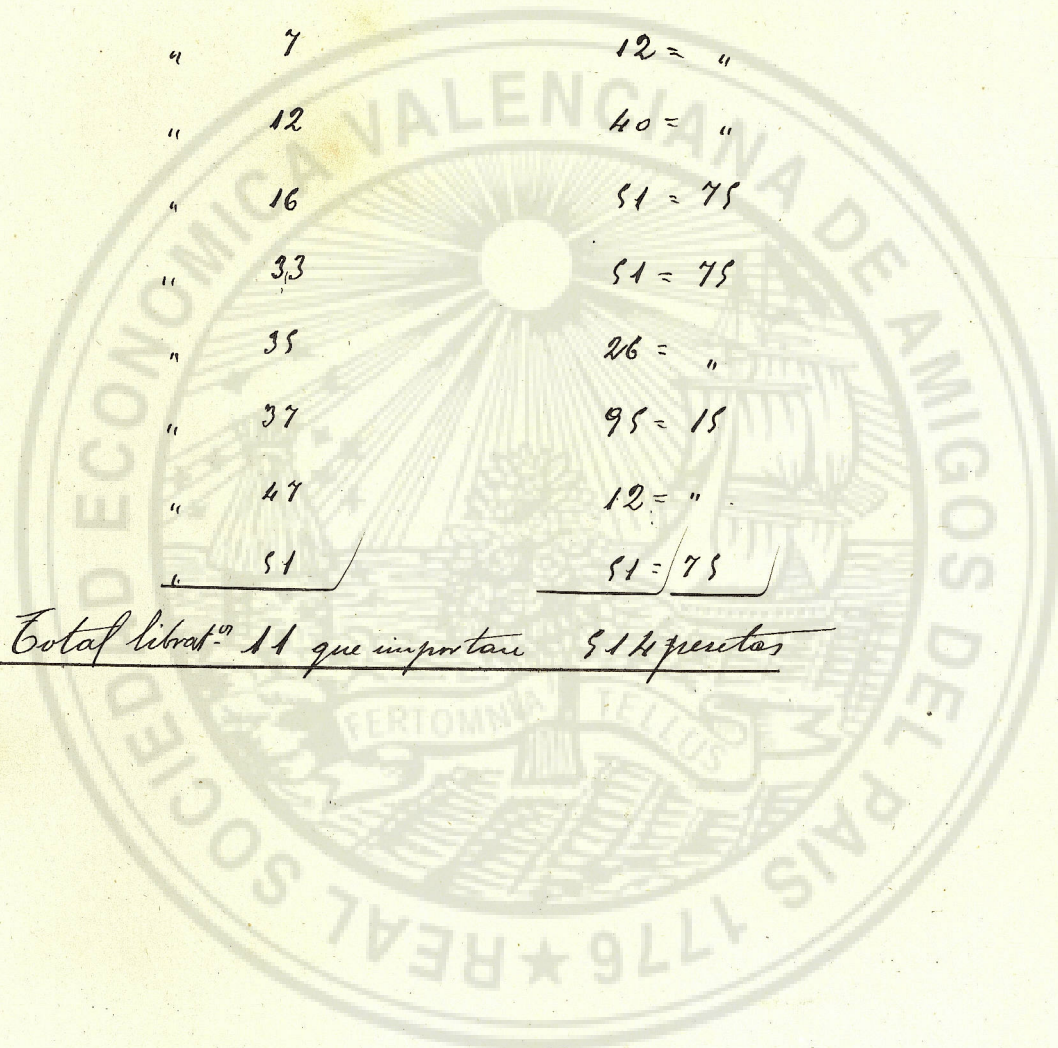 " 7 12 = "
" 12 40 = "
" 16 51 = 75
" 33 51 = 75
" 35 26 = "
" 37 95 = 15
" 47 12 = "
" 51 51 = 75
Total librat.s 11 que importan 514 pesetas
REAL SOCIEDAD ECONOMICA VALENCIANA DE AMIGOS DEL PAIS 1776 ★
FERT OMNIA TELLUS